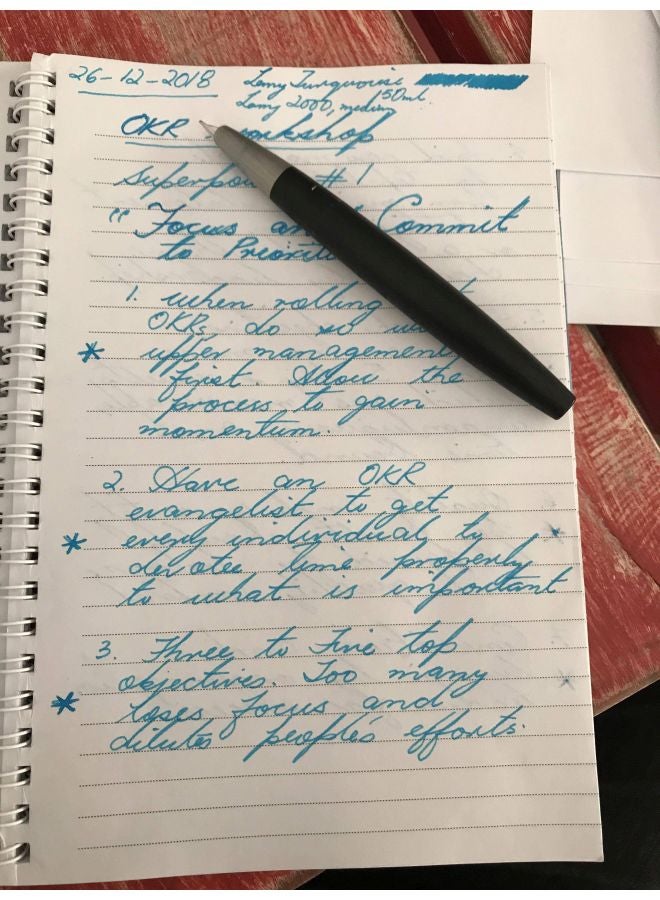 26-12-2018
Lamy Turquoise
150ml.
Lamy 2000, medium
OKR workshop
Superpow #1
"Focus an Commit
to Priorit
1. when rolling
OKRs do so
upper management
first. Allow the
process to gain
momentum.
2. Have an OKR
evangelist to get
every individual to
devotee time properly
to what is important
3. Three to Five top
objectives. Too many
loses focus and
dilutes people's efforts.